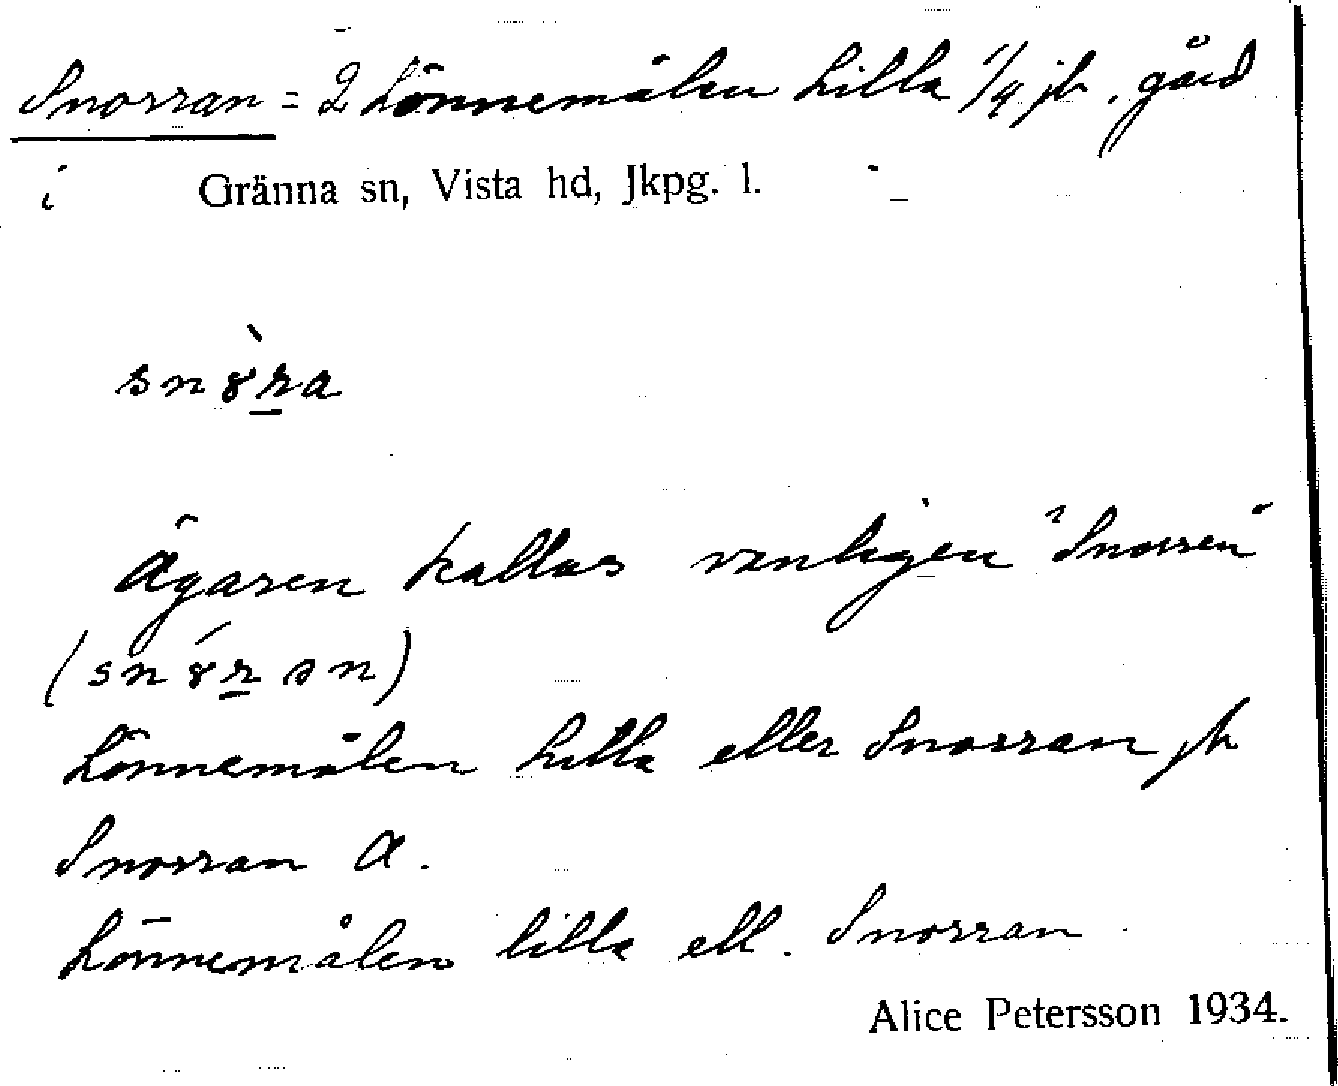 Snorran = 2 Lönnemålen Lilla 1/4 jb. gård
i Gränna sn, Vista hd, Jkpg. l.
snòra
Ägaren kallas vanligen "Snorren"
(snórən)
Lönnemålen Lilla eller Snorran jb
Snorran A.
Lönnemålen lilla ell. Snorran
Alice Petersson 1934.